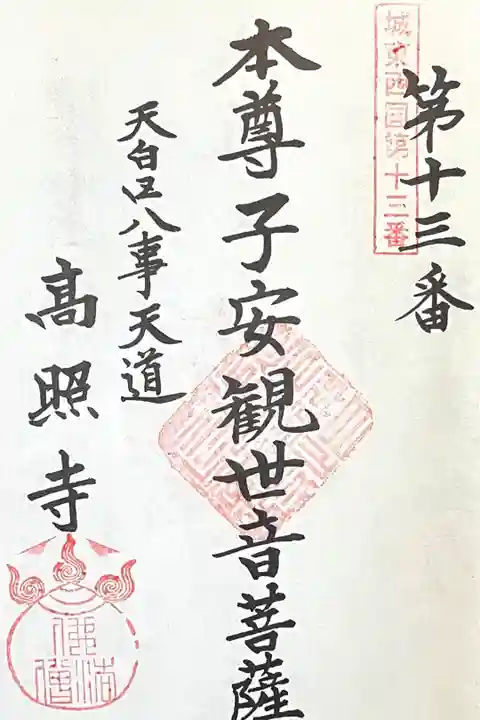 第十三番
城東西国第十三番
本尊子安観世音菩薩
天白区八事天道
高照寺
佛法僧